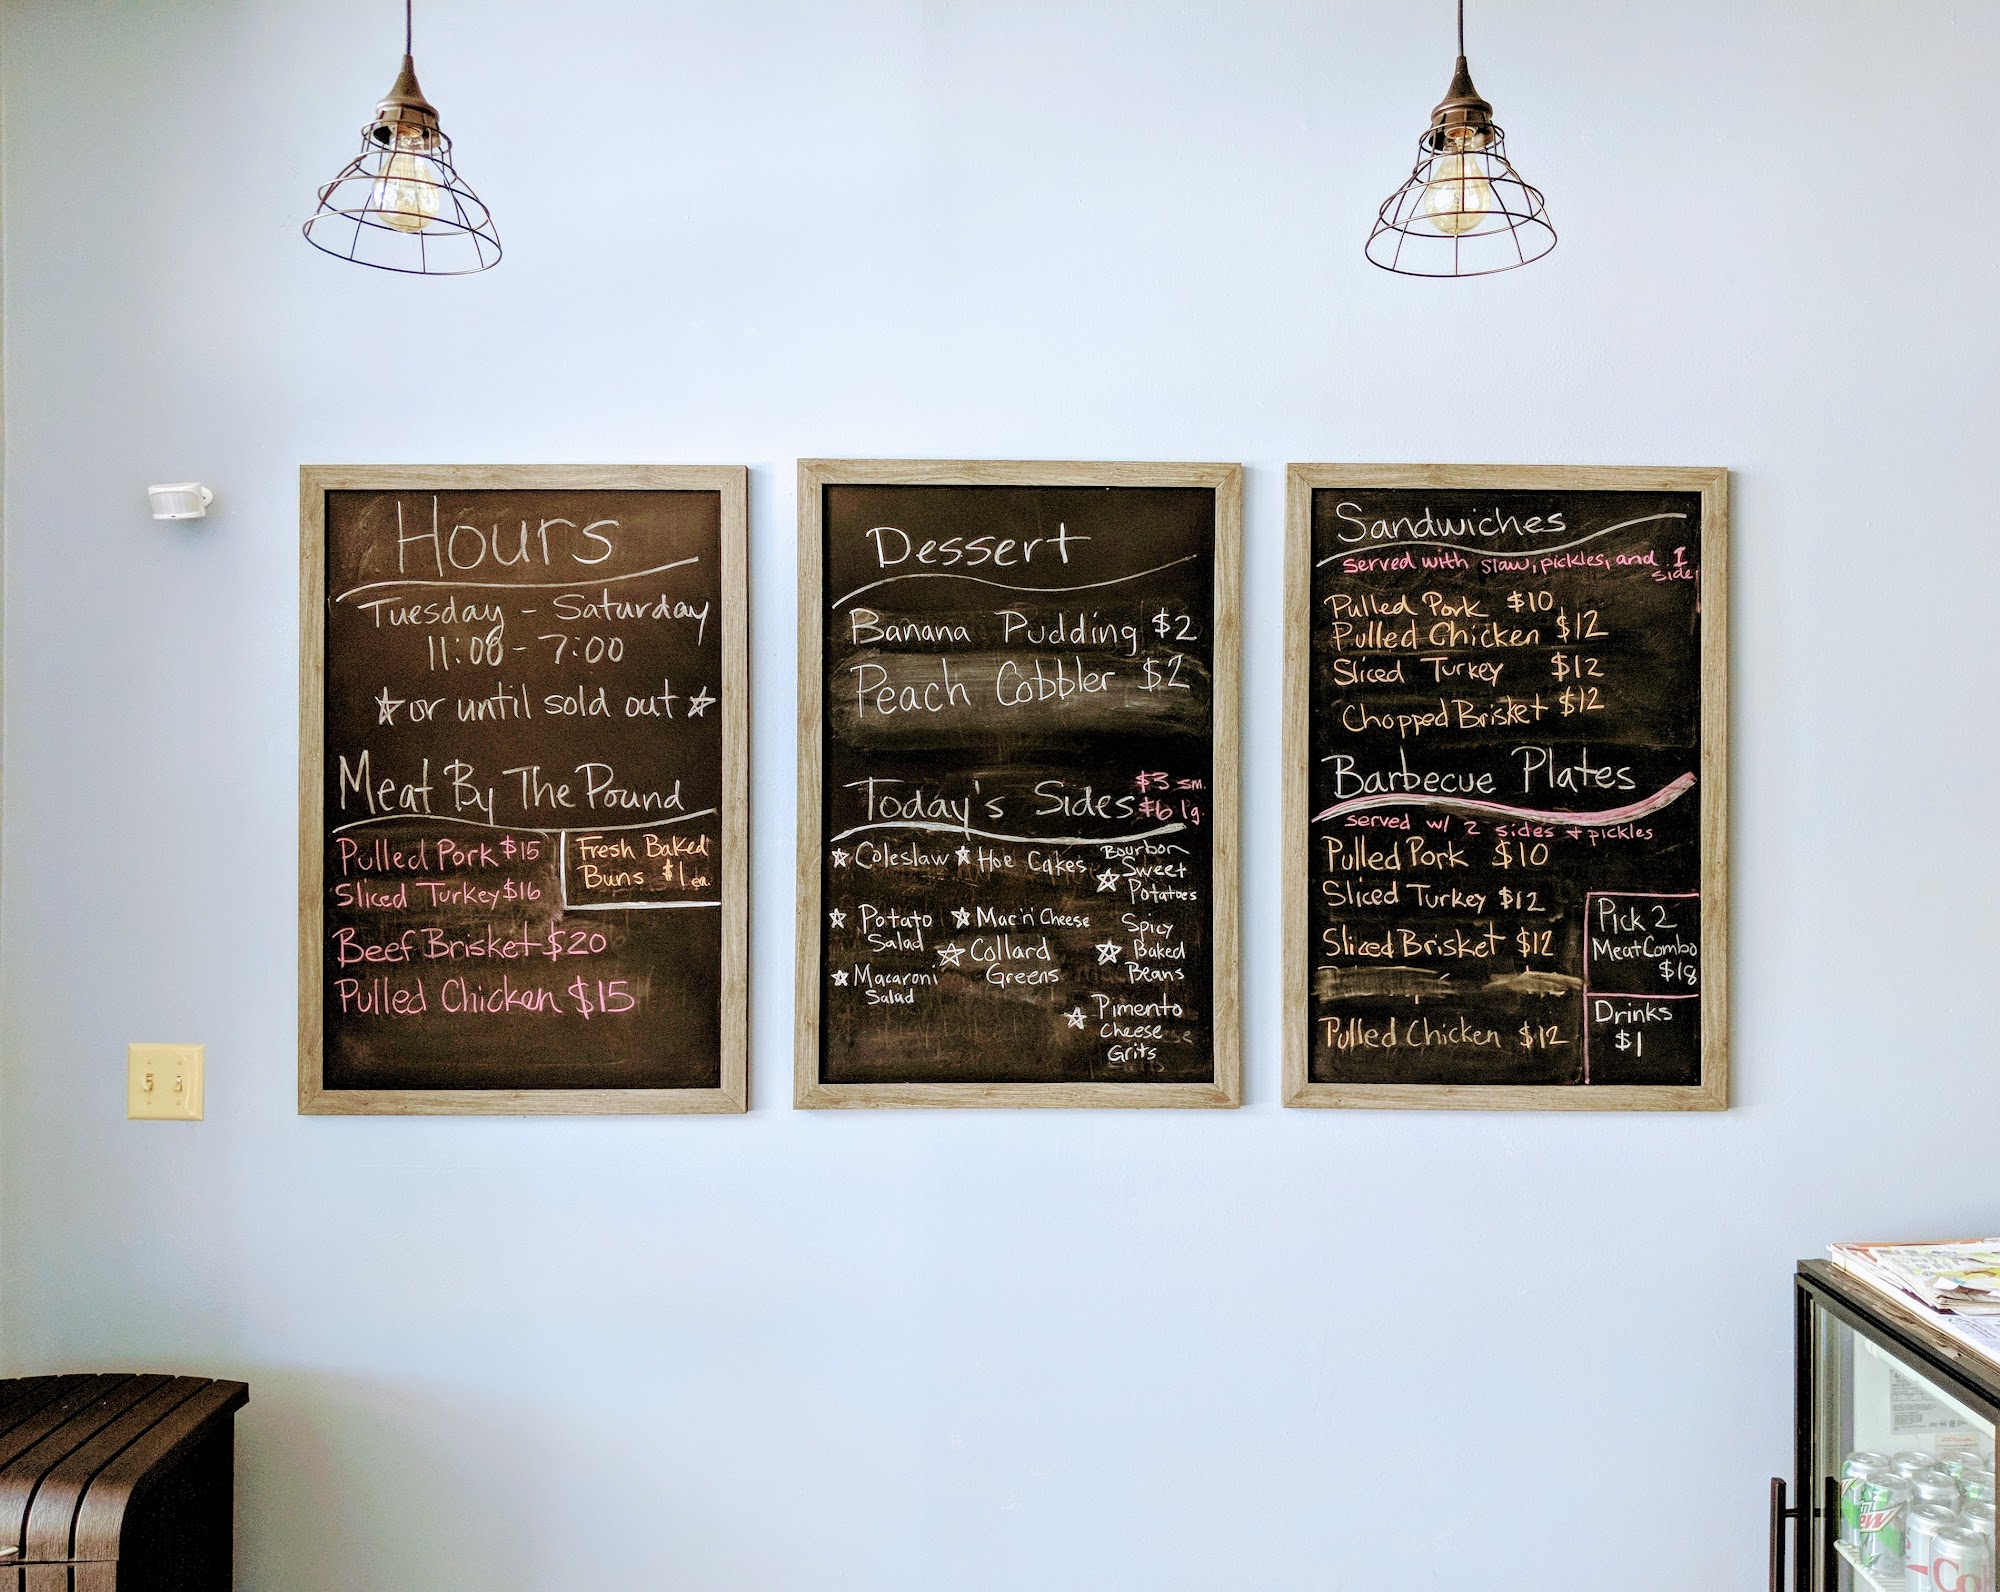 Hours
Tuesday - Saturday
11:00 - 7:00
☆ or until sold out ☆
Meat By The Pound
Pulled Pork $15
Sliced Turkey $16
Beef Brisket $20
Pulled Chicken $15
Fresh Baked
Buns $1 ea.
Dessert
Banana Pudding $2
Peach Cobbler $2
Today's Sides
$3 sm.
$6 lg.
☆ Coleslaw
☆ Potato
Salad
☆ Macaroni
Salad
☆ Hoe Cakes
☆ Mac'n'Cheese
☆ Collard
Greens
Bourbon
☆ Sweet
Potatoes
Spicy
☆ Baked
Beans
☆ Pimento
Cheese
Grits
Sandwiches
served with slaw, pickles, and 1
side
Pulled Pork $10
Pulled Chicken $12
Sliced Turkey $12
Chopped Brisket $12
Barbecue Plates
served w/ 2 sides + pickles
Pulled Pork $10
Sliced Turkey $12
Sliced Brisket $12
Pulled Chicken $12
Pick 2
Meat Combo
$18
Drinks
$1